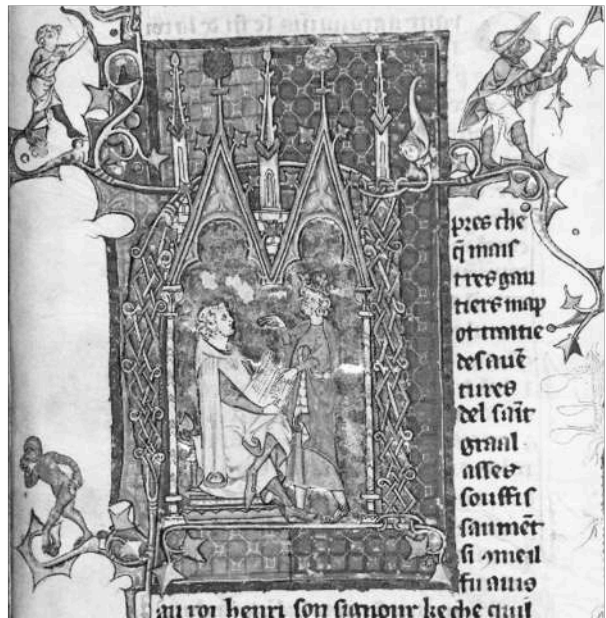 pres che
q̃ mais
tres gau
tiers map
ot traitie
des auẽ
tures
del saĩt
graal
asses
souffis
saumẽt
si 9meil
fu auis
au roi henri son signour ke che quil